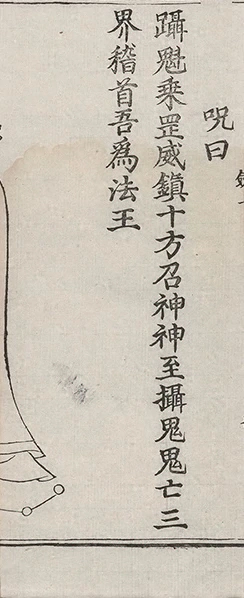 呪曰
躡魁乘罡威鎮十方召神神至攝鬼鬼亡三
界稽首吾爲法王